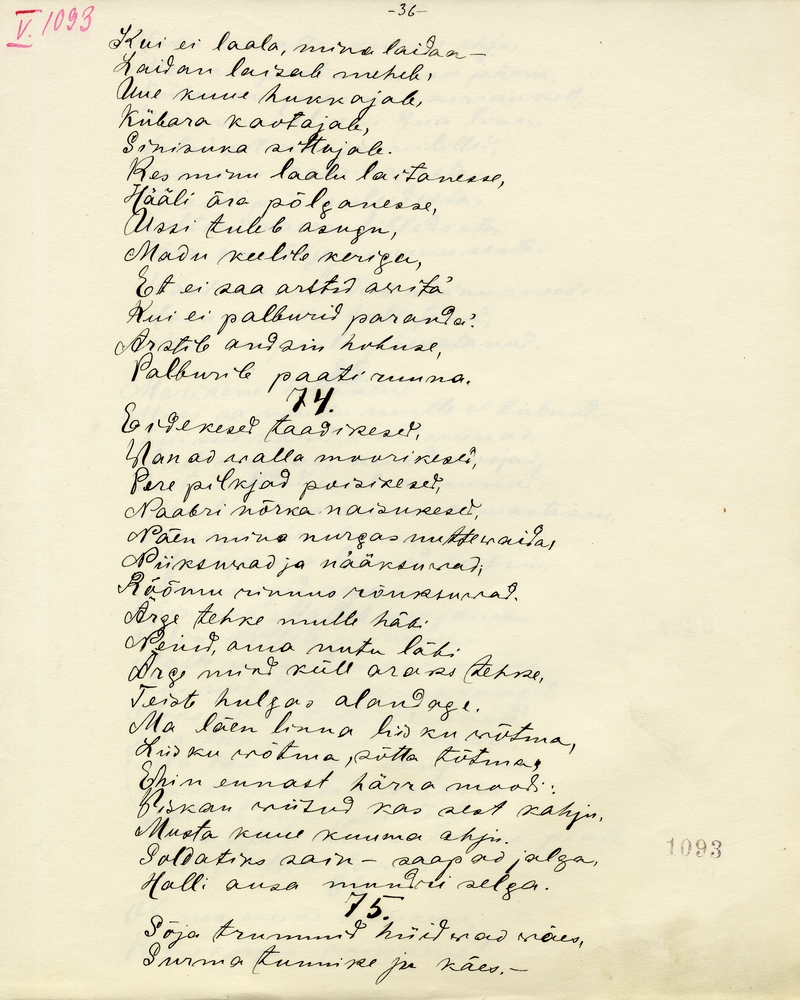 -36-
V. 1093
Kui ei laala, mina laidan —
Laidan laisale mehele,
Uue kuue hukkajale,
Kübara kaotajale,
Sinisuka sittujale.
Kes minu laalu laitanesse,
Hääli ära põlganesse,
Ussi tuleb asugu,
Madu keelile kerigu,
Et ei saa arstid awita'
Kui ei palburid paranda'.
Arstile andsin hobuse,
Palburile paati ruuna.
74.
Eidekesed taadikesed,
Wanad walla moorikesed,
Pere pilkjad poisikesed,
Naabri nõrka naisukesed,
Näen mina nurgas nuttewaida,
Piiksuwad ja nääksuwad,
Rõõmu rinnus rõuksuwad.
Ärge tehke mulle häbi
Neiud, oma nutu läbi
Ärge mind küll araks tehke,
Teiste hulgas alandage.
Ma läen linna liisku wõtma,
Liisku wõtma, sõtta tõtma,
Ehin ennast härra moodi:
Wiskan wiisud kas sest kahju,
Musta kuue kuuma ahju.
Soldatiks sain — saapad jalga,
Halli ausa mundri selga.
75.
Sõja trummid hüidwad wäes,
Surma tunnike ju käes. —
1093